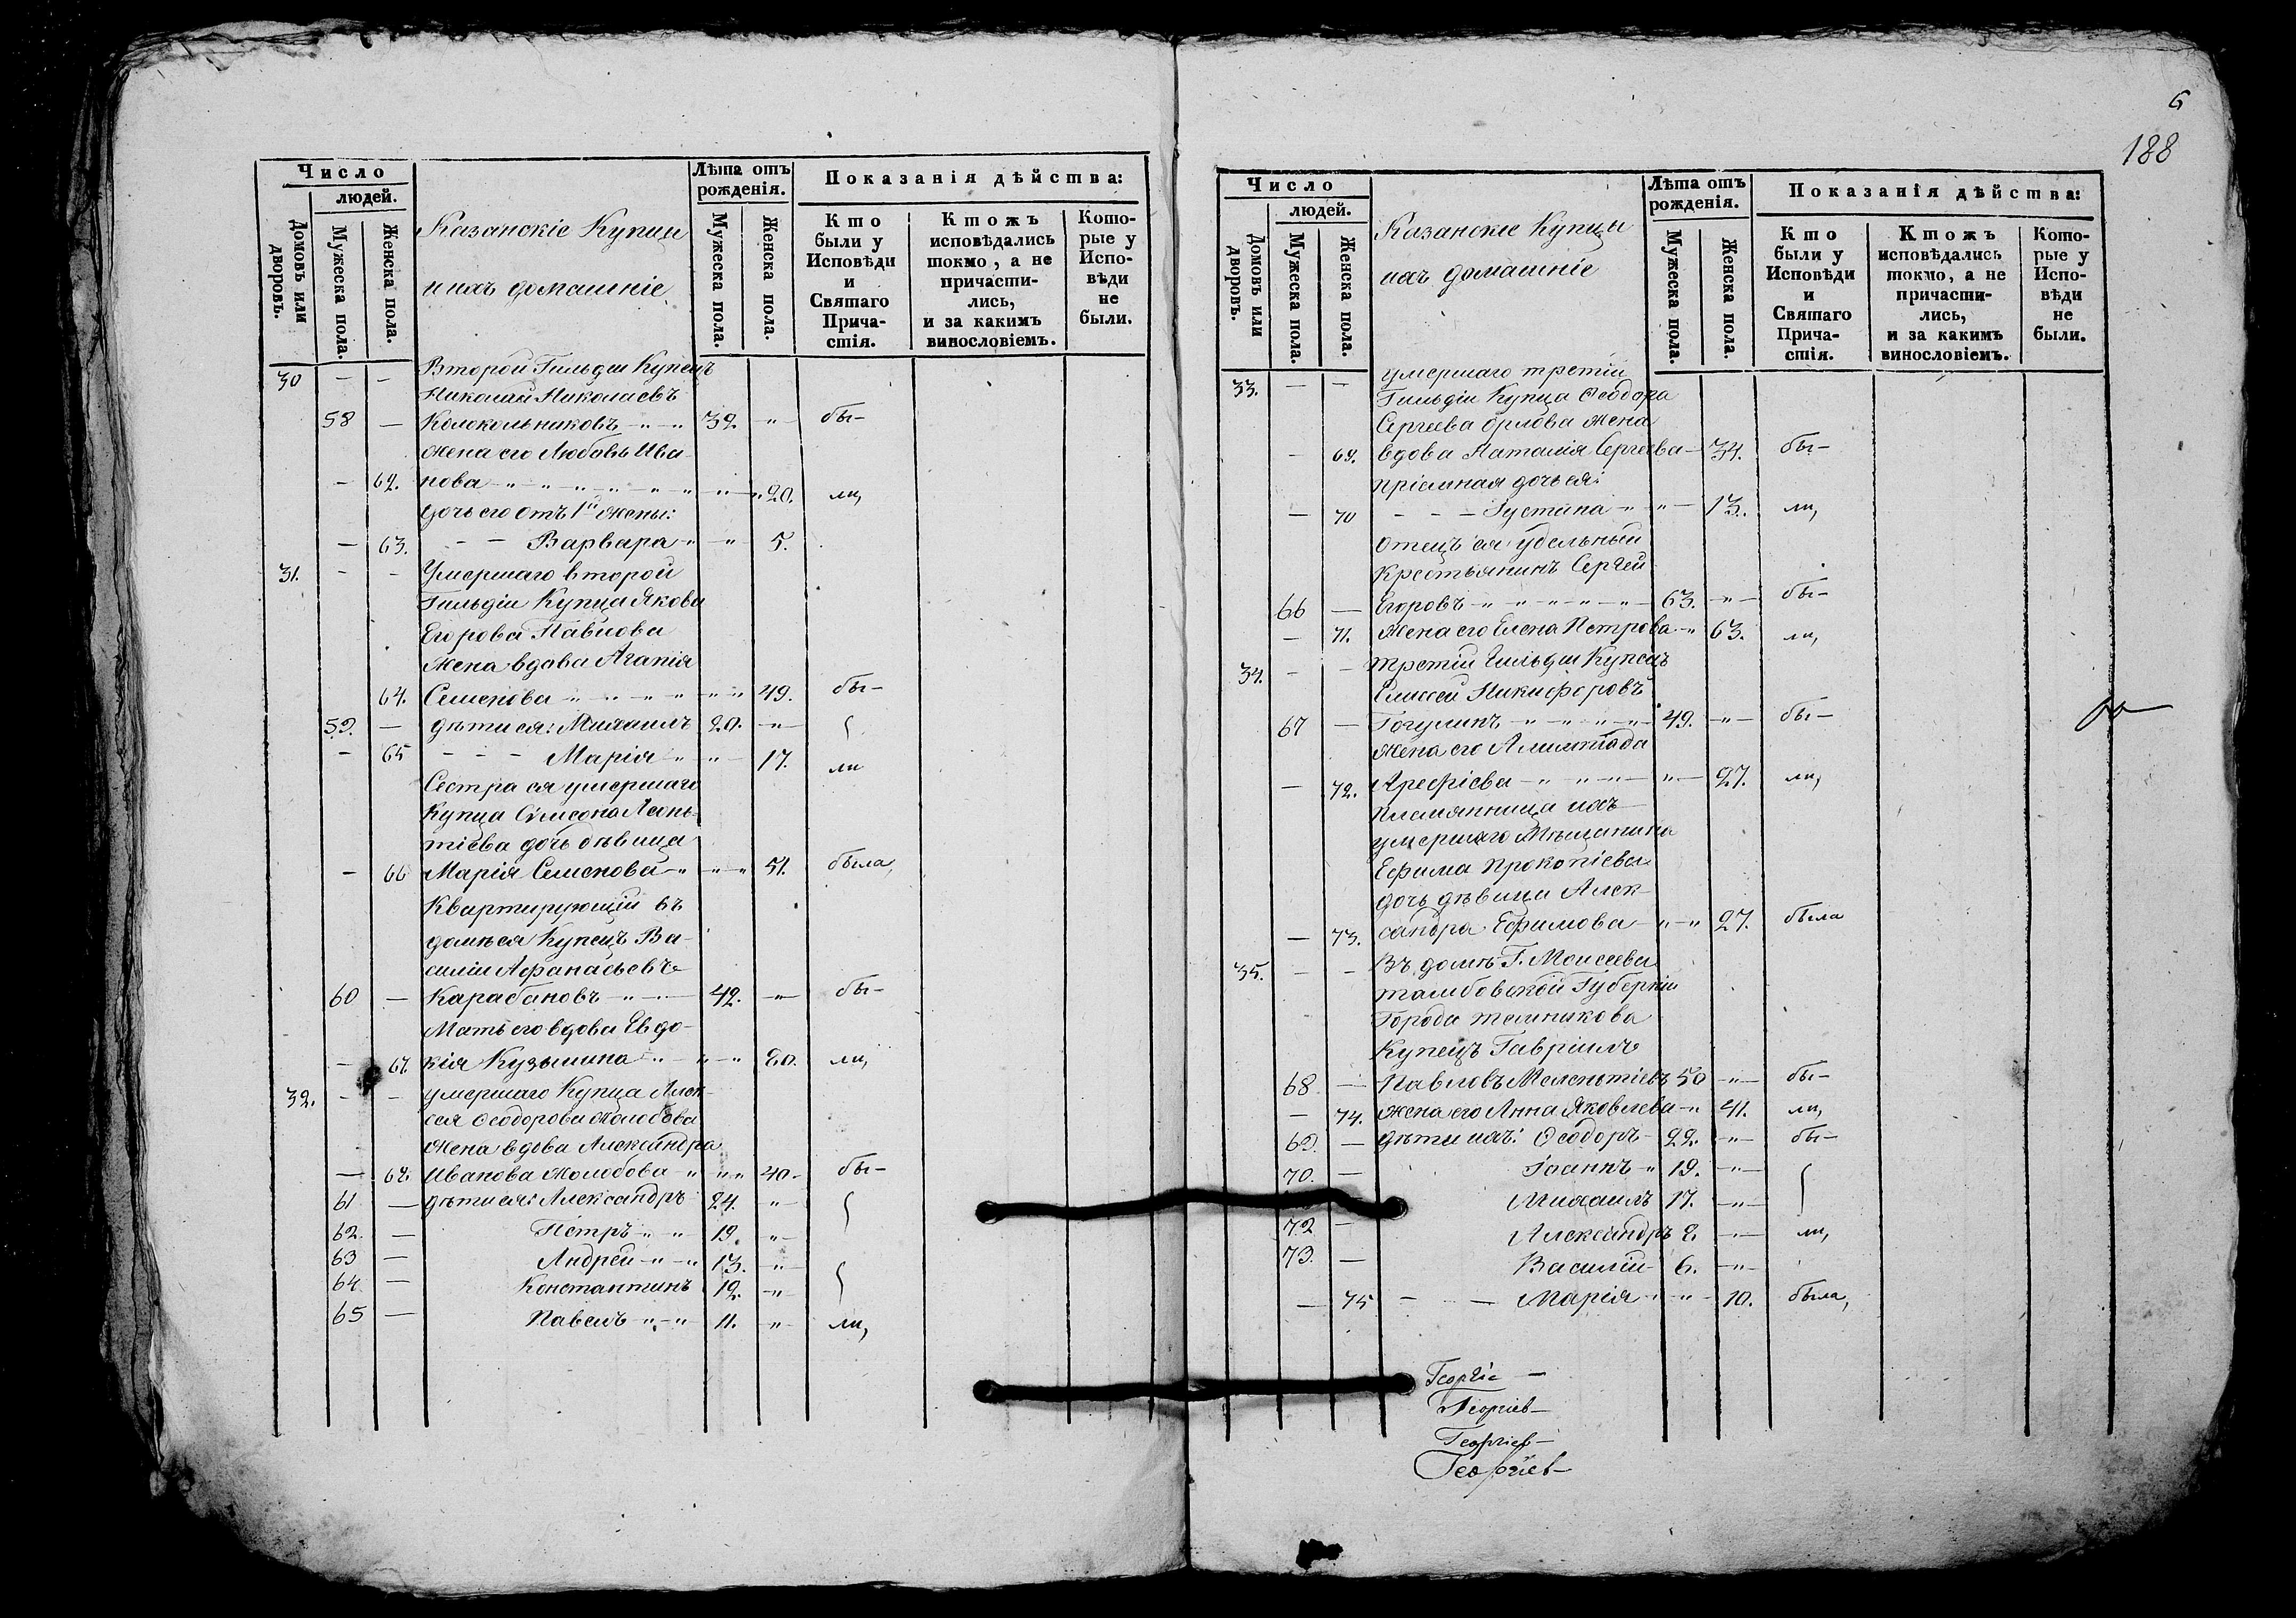 Число
людей.
Домовъ или дворовъ.
Мужеска пола.
Женска пола.
Казанскіе Купцы
и ихъ домашніе
Лѣта отъ рожденія.
Мужеска пола.
Женска пола.
Показанія дѣйства:
Кто
были у
Исповѣди
и
Святаго
Прича-
стія.
Ктожъ
исповѣдались
токмо, а не
причасти-
лись,
и за какимъ
винословіемъ.
Кото-
рые у
Испо-
вѣди
не
были.
30 — — Второй Гильдіи Купецъ
Николай Николаевъ
58 — Колокольниковъ 39. бы-
Жена его Любовь Ива-
— 62. нова 20. ли,
дочь его отъ 1й жены:
— 63. Варвара 5.
31. — — Умершаго второй
Гильдіи Купца Якова
Егорова Павлова
Жена вдова Агапія
64. Семенова 49. бы-
59. — дѣти ея: Михаилъ 20.
— 65 Марія 17. ли
Сестра ея умершаго
Купца Сѵмеона Леонь-
тіева дочь дѣвица
— 66 Марія Семенова 51. была,
Квартирующій въ
домѣ ея Купецъ Ва-
силій Афанасьевъ
60 — Карабановъ 42. бы-
Мать его вдова Евдо-
— 67. кія Кузьмина 80. ли,
32. — — умершаго Купца Алек-
сея Ѳеодорова Жолобова
Жена вдова Александра
— 68. Иванова Жолобова 40. бы-
61 — дѣти ея: Александръ 24.
62. — Петръ 19.
63 — Андрей 13.
64 — Константинъ 12.
65 — Павелъ 11. ли,
6
188
Число
людей.
Домовъ или дворовъ.
Мужеска пола.
Женска пола.
Казанскіе Купцы
ихъ домашніе
Лѣта отъ рожденія.
Мужеска пола.
Женска пола.
Показанія дѣйства:
Кто
были у
Исповѣди
и
Святаго
Прича-
стія.
Ктожъ
исповѣдались
токмо, а не
причасти-
лись,
и за какимъ
винословіемъ.
Кото-
рые у
Испо-
вѣди
не
были.
33. — — умершаго третій
Гильдіи Купца Ѳеодора
Сергеева Орлова жена
— 69. вдова Наталія Сергеева 34. бы-
пріемная дочь ея:
— 70 Іустина 13. ли,
Отецъ ея удельный
Крестьянинъ Сергей
66 — Егоровъ 63. бы-
— 71. Жена его Елена Петрова 63. ли,
34. — — третій Гильдіи Купецъ
Елисей Никифоровъ
67 — Гогулинъ 49. бы-
Жена его Алимпіада
— 72. Арефіева 27. ли,
Племянница ихъ
умершаго Мѣщанина
Ефима Прокопіева
дочь дѣвица Алек-
— 73. сандра Ефимова 27. была
35. — — Въ домѣ Г. Моисеева
тамбовской Губерніи
Города темникова
Купецъ Гавріилъ
68 — Павловъ Мелентіевъ 50 бы-
— 74. Жена его Анна Яковлева 41. ли,
69. — дѣти ихъ: Ѳеодоръ 22. бы-
70. — Іоаннъ 19.
Михаилъ 17.
72 — Александръ 8. ли,
73. — Василій 6.
— 75 — — Марія 10. была,
Георгіе —
Георгіев —
Георгіев —
Георгіев —